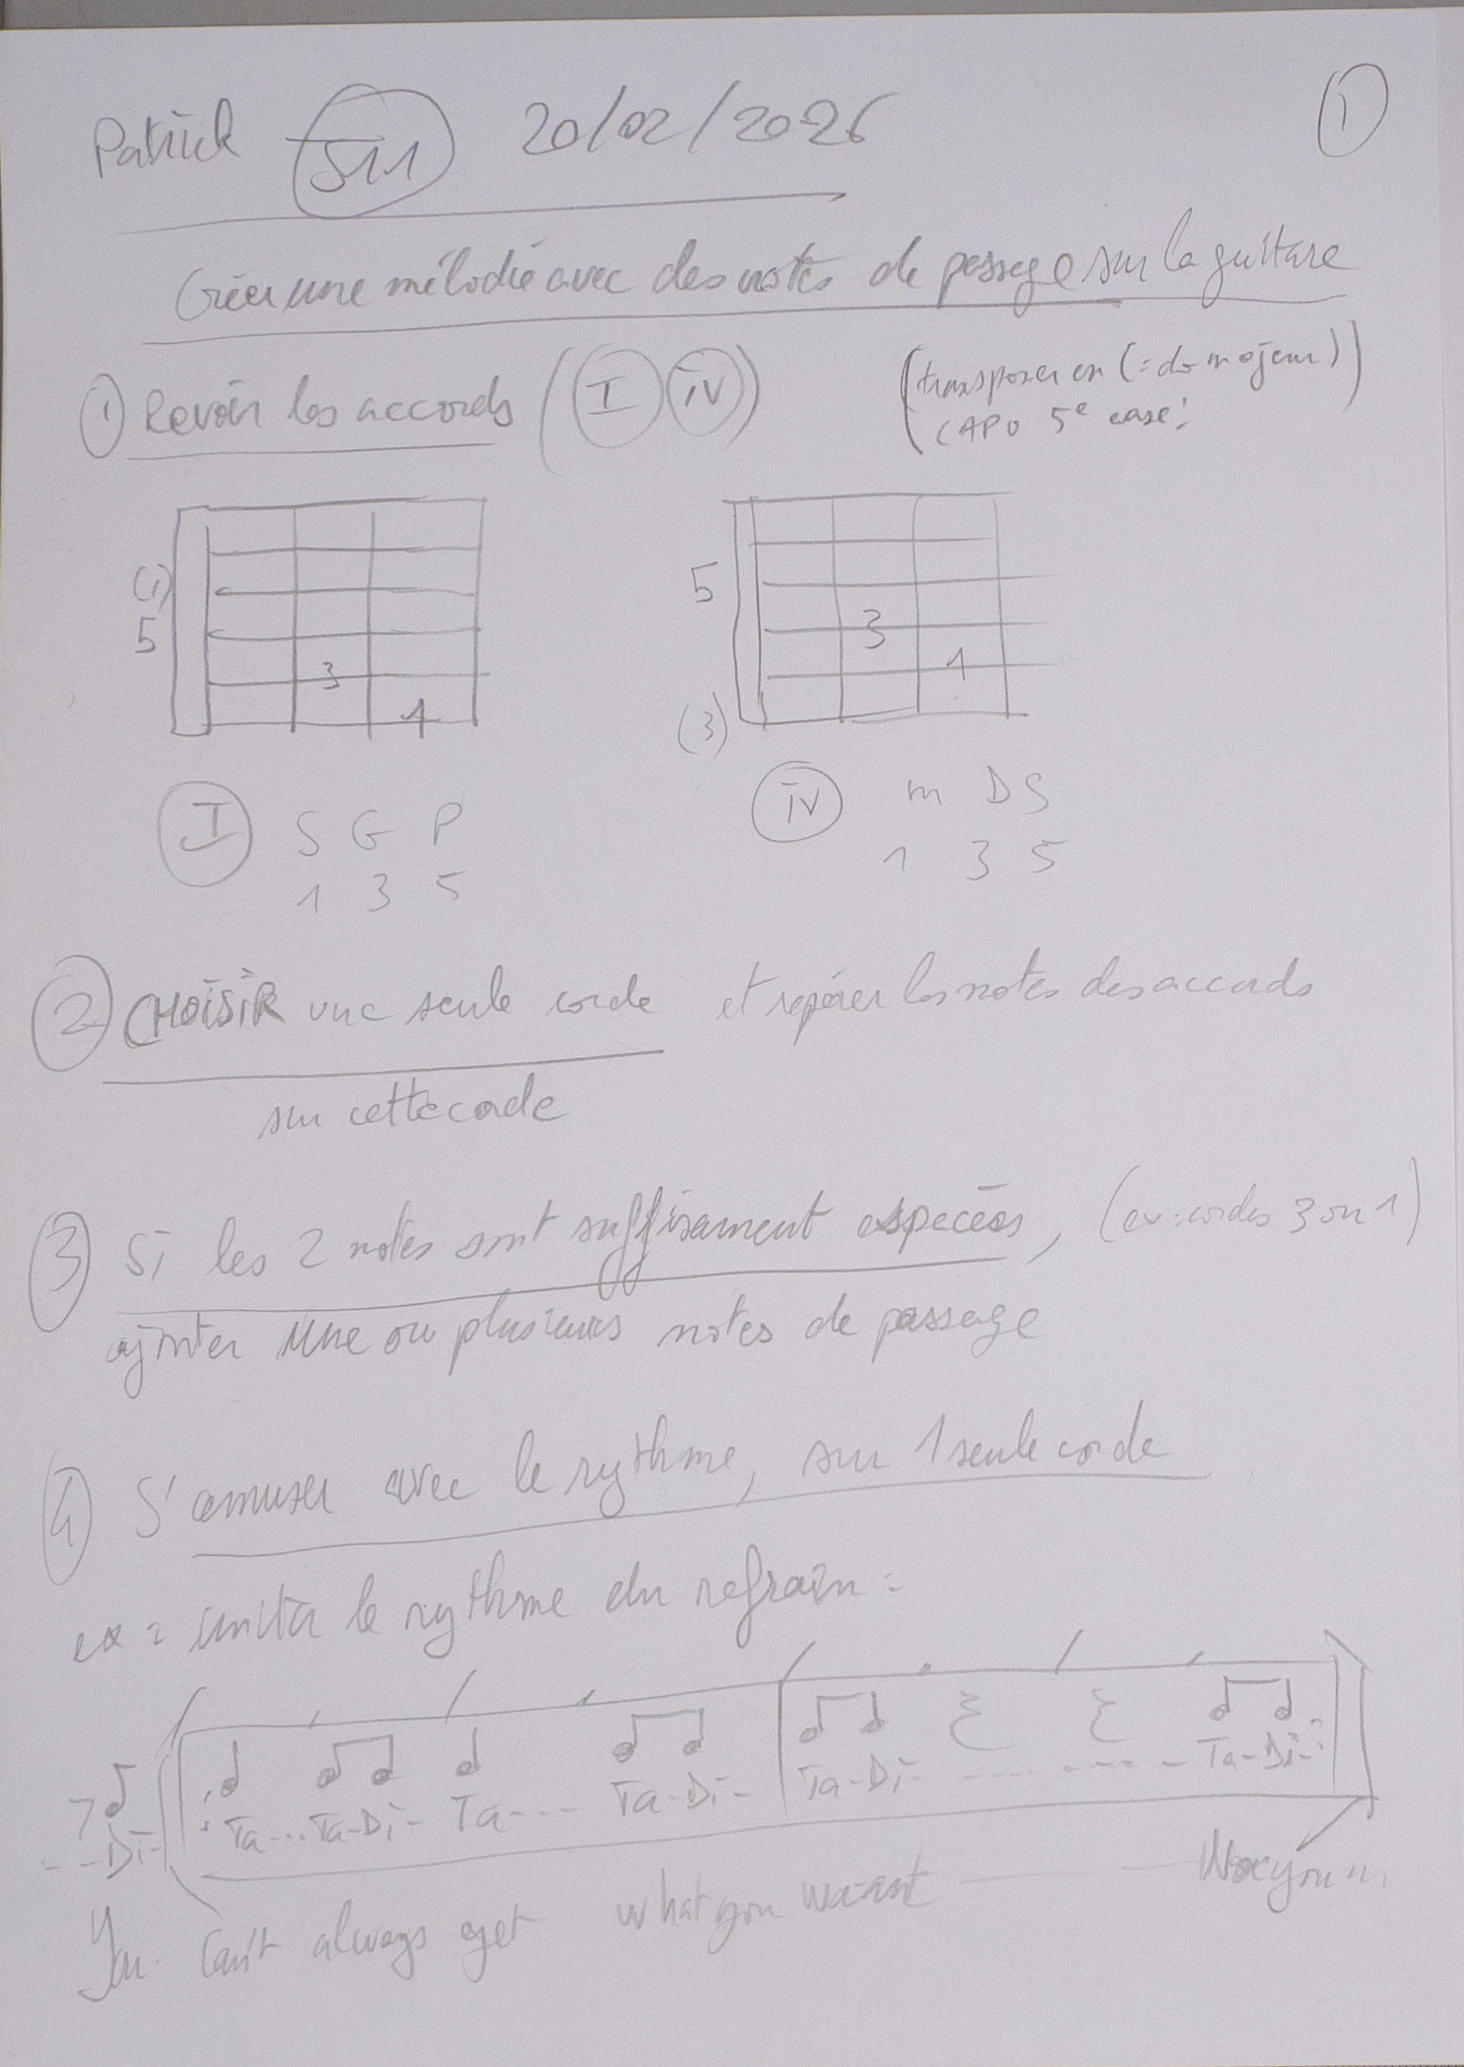 Patrick S11 20/02/2026 1
Créer une mélodie avec des notes de passage sur la guitare
1 Revoir les accords (I iv) (transposer en (=do majeur))
CAPO 5e case!
(1) 5
5 3
3 1
1 (3)
I S G P iv m D S
1 3 5 1 3 5
2 CHOISIR une seule corde et repérer les notes des accords
sur cette corde
3 Si les 2 notes sont suffisament espacées, (ex: cordes 3 ou 1)
ajouter une ou plusieurs notes de passage
4 S'amuser avec le rythme, sur 1 seule corde
ex = imiter le rythme du refrain =
--Di- Ta...Ta-Di- Ta--- Ta-Di- Ta-Di- ---- ---- Ta-Di-
You can't always get what you waant No you...